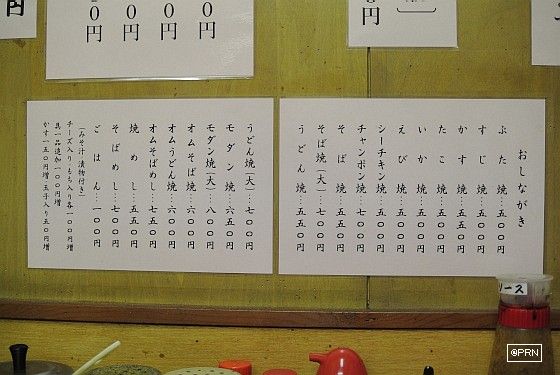 おしながき
ぶた焼…五五〇円
すじ焼…五五〇円
かす焼…五五〇円
たこ焼…五五〇円
いか焼…五五〇円
えび焼…五五〇円
シーチキン焼…五五〇円
チャンポン焼…七〇〇円
そば焼…五五〇円
そば焼(大)…七〇〇円
うどん焼…五五〇円
うどん焼(大)…七〇〇円
モダン焼…六〇〇円
モダン焼(大)…八〇〇円
オムそば焼…六〇〇円
オムうどん焼…六〇〇円
オムそばめし…七五〇円
焼めし…五五〇円
そばめし…七〇〇円
ごはん…一〇〇円
(みそ汁 漬物付き)
チーズ入り・もち入り各一〇〇円増
具一品追加一〇〇円増
かす一五〇円増 玉子入り五〇円増
0円
0円
0円
0円
円
円
ソース
@PRN